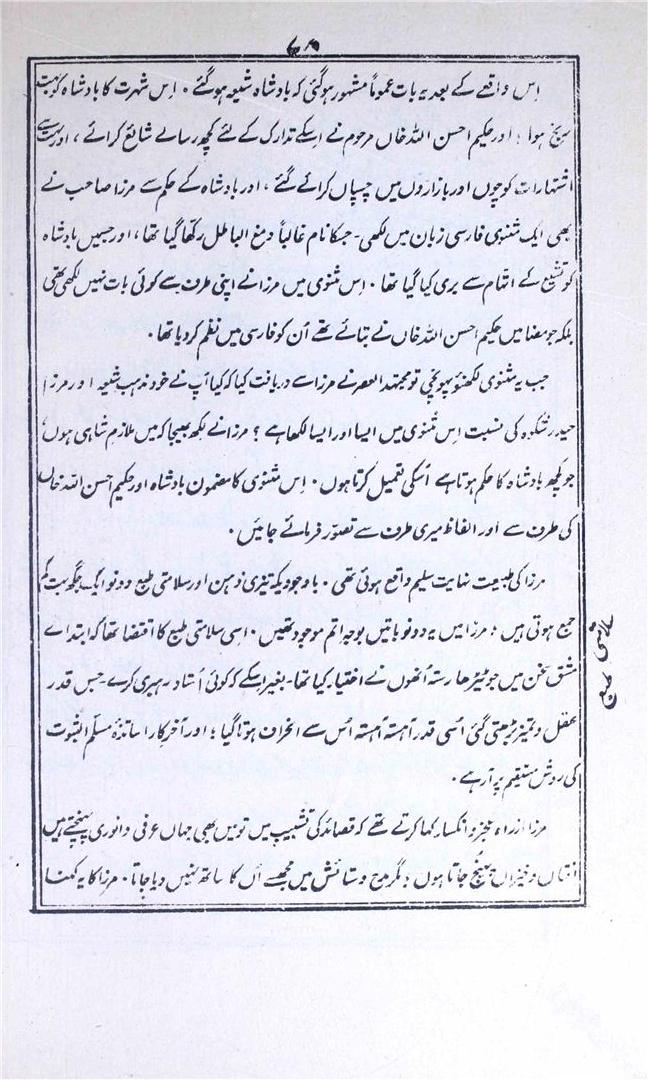 اِس واقعے کے بعد یہ بات عموماً مشہور ہوگئی کہ بادشاہ شیعہ ہوگئے ۔ اِس شہرت کا بادشاہ کو بہت
رنج ہوا ؛ اور حکیم احسن اللہ خاں مرحوم نے اِسکے تدارک کے لئے کچھ رسالے شائع کرائے ، اور بہت سے
اشتہارات کوچوں اور بازاروں میں چسپاں کرائے گئے ، اور بادشاہ کے حکم سے مرزا صاحب نے
بھی ایک مثنوی فارسی زبان میں لکھی ۔ جسکا نام غالباً دمغ الباطل رکھا گیا تھا ، اور جسمیں بادشاہ
کو تشیع کے اتہام سے بری کیا گیا تھا ۔ اِس مثنوی میں مرزا نے اپنی طرف سے کوئی بات نہیں لکھی تھی
بلکہ جو مضامین حکیم احسن اللہ خاں نے بتائے تھے اُن کو فارسی میں نظم کر دیا تھا ۔
جب یہ مثنوی لکھنؤ پہونچی تو مجتہد العصر نے مرزا سے دریافت کیا کہ کیا آپ نے خود مذہب شیعہ اور مرزا
حیدر شکوہ کی نسبت اِس مثنوی میں ایسا اور ایسا لکھا ہے ؟ مرزا نے لکھ بھیجا کہ میں ملازمِ شاہی ہوں
جو کچھ بادشاہ کا حکم ہوتا ہے اُسکی تعمیل کرتا ہوں ۔ اِس مثنوی کا مضمون بادشاہ اور حکیم احسن اللہ خاں
کی طرف سے اور الفاظ میری طرف سے تصوّر فرمائے جائیں ۔
مرزا کی طبیعت نہایت سلیم واقع ہوئی تھی ۔ باوجودیکہ تیزی ذہن اور سلامتی طبع دونو ایک جگہ بہت کم
جمع ہوتی ہیں ؛ مرزا میں یہ دونو باتیں بوجہ اتم موجود تھیں ۔ اسی سلامتی طبع کا اقتضا تھا کہ ابتداے
سلامتی طبع
مشق سخن میں جو ٹیڑھا رستہ اُنھوں نے اختیار کیا تھا ۔ بغیر اِسکے کہ کوئی اُستاد رہبری کرے ۔ جس قدر
عقل و تمیز بڑھتی گئی اُسی قدر آہستہ آہستہ اُس سے انحراف ہوتا گیا ؛ اور آخر کار اساتذۂ مسلّم الثبوت
کی روش مستقیم پر آ رہے ۔
مرزا ازراہ عجز و انکسار کہا کرتے تھے کہ قصائد کی تشبیب میں تو میں بھی جہاں عرفی و انوری پہنچتے ہیں
افتاں و خیزاں پہنچ جاتا ہوں ؛ مگر مدح و ستائش میں مجھسے اُن کا ساتھ نہیں دیا جاتا ۔ مرزا کا یہ کہنا